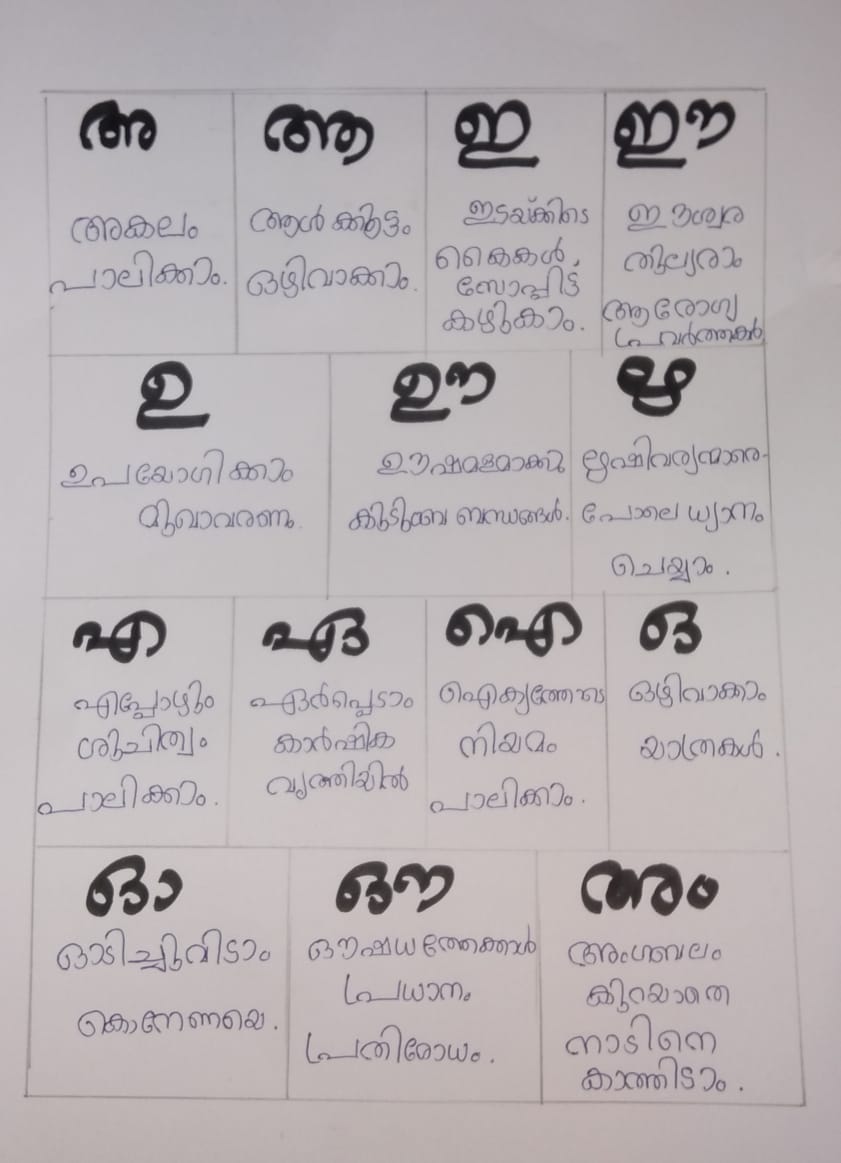 അ ആ ഇ ഈ
അകലം
പാലിക്കാം.
ആൾക്കൂട്ടം
ഒഴിവാക്കാം.
ഇടയ്ക്കിടെ
കൈകൾ,
സോപ്പിട്ട്
കഴുകാം.
ഈശ്വര
തുല്യരാം
ആരോഗ്യ
പ്രവർത്തകർ
ഉ ഊ ഋ
ഉപയോഗിക്കാം
മുഖാവരണം.
ഊഷ്മളമാക്കൂ
കുടുംബ ബന്ധങ്ങൾ.
ഋഷിവര്യന്മാരെ-
പോലെ ധ്യാനം
ചെയ്യാം.
എ ഏ ഐ ഒ
എപ്പോഴും
ശുചിത്വം
പാലിക്കാം.
ഏർപ്പെടാം
കാർഷിക
വൃത്തിയിൽ
ഐക്യത്തോടെ
നിയമം
പാലിക്കാം.
ഒഴിവാക്കാം
യാത്രകൾ.
ഓ ഔ അം
ഓടിച്ചുവിടാം
കൊറോണയെ.
ഔഷധത്തേക്കാൾ
പ്രധാനം
പ്രതിരോധം.
അംഗബലം
കുറയാതെ
നാടിനെ
കാത്തിടാം.